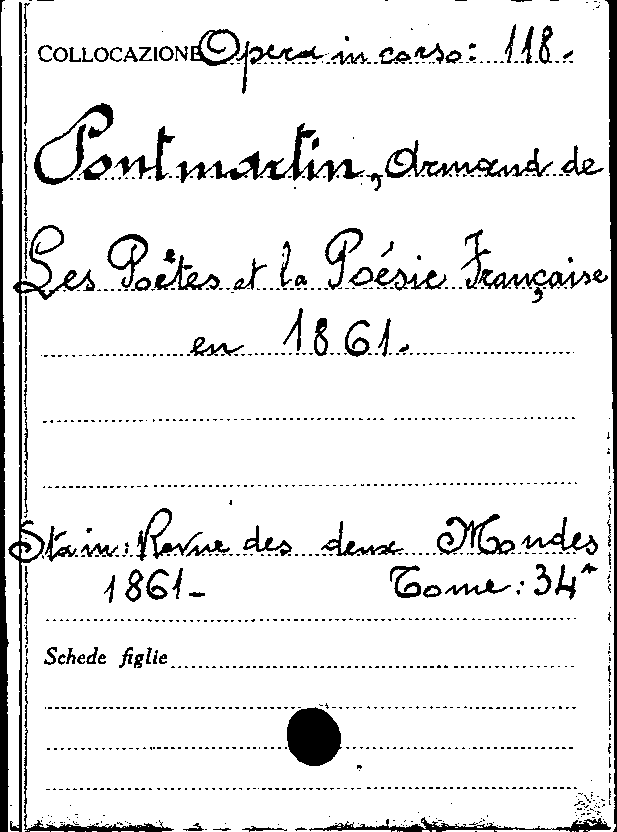 COLLOCAZIONE Opera in corso: 118.
Pontmartin, Armand de
Les Poëtes et la Poésie Française
en 1861.
Sta in: Revue des deux Mondes
1861- Tome: 34°
Schede figlie